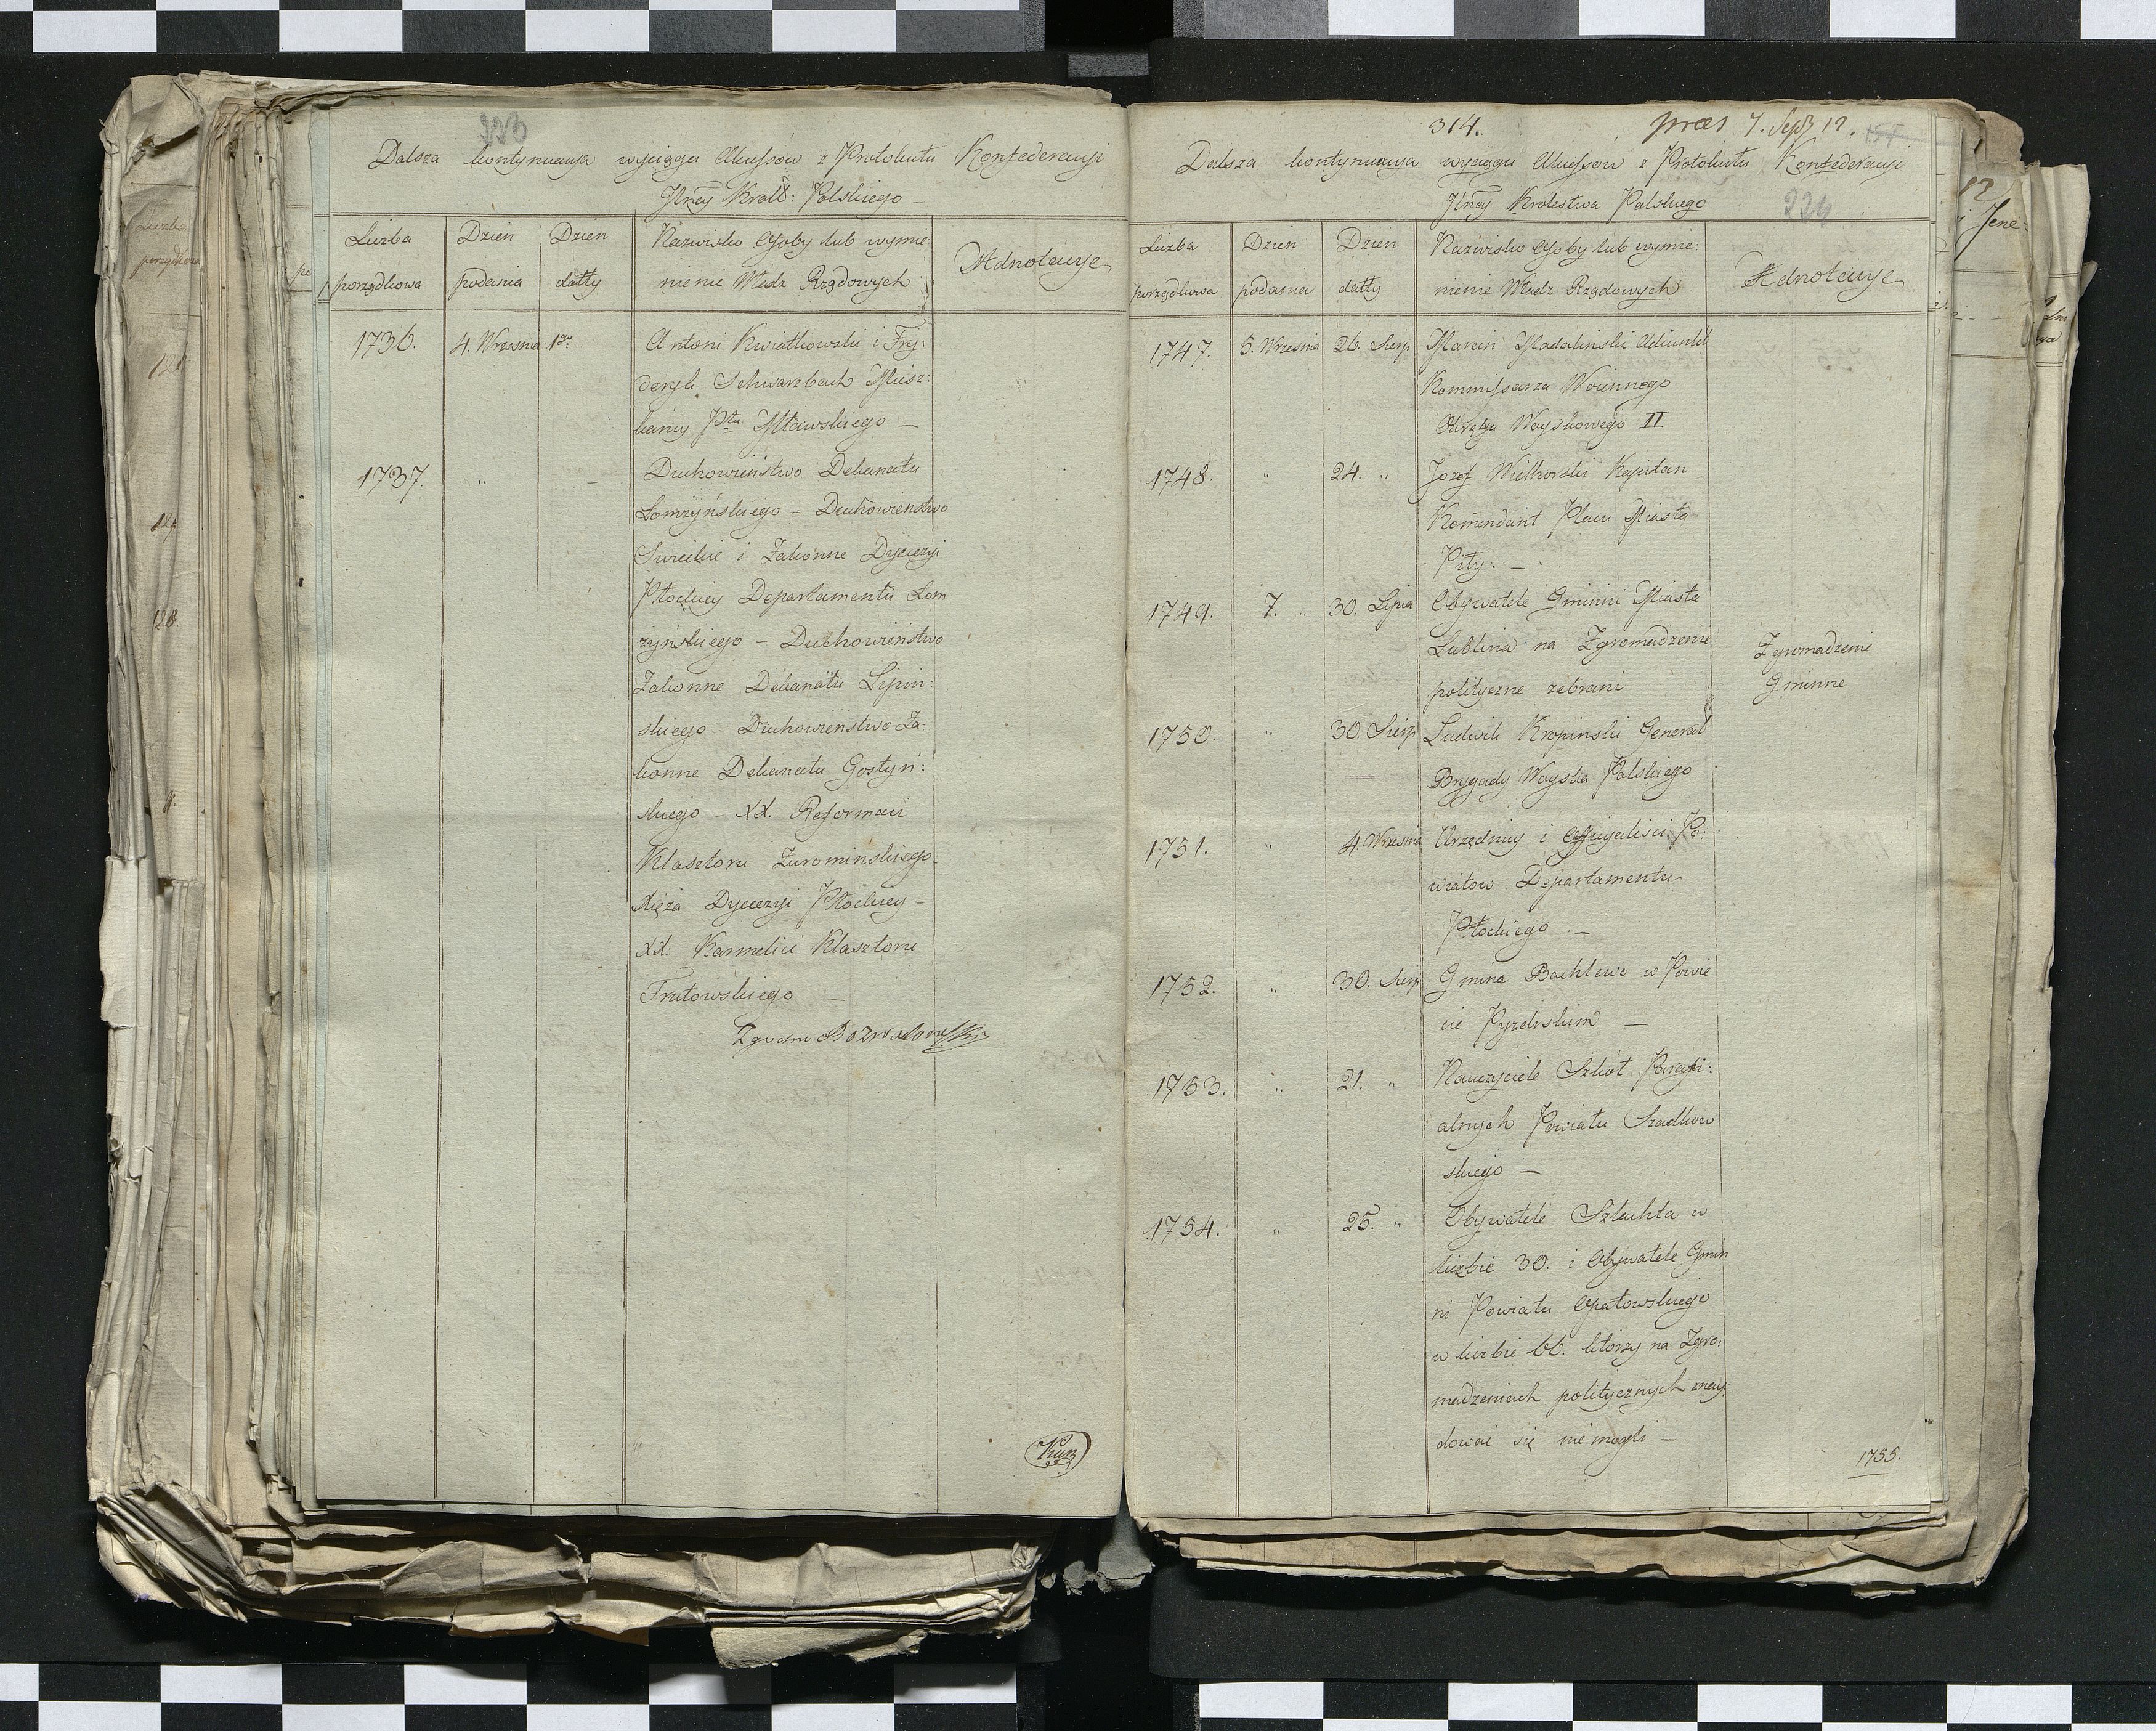 223
Dalsza kontynuacya wyciągu Akcessow z Protokułu Konfederacyi
Jlney Krolb: Polskiego
Liczba porządkowa
Dzien podania
Dzien datty
Nazwisko Osoby lub wymie:
nienie Władz Rządowych
Adnotacye
1736. 4. Wrzesnia 1go Antoni Kwiatkowski i Fry:
deryk Schwarzbach Miesz:
kańcy Ptu Mławskiego —
1737. „ – Duchowieństwo Dekanatu
Łomżyńskiego – Duchowieństwo
Swieckie i Zakonne Dyecezyi
Płockiey Departamentu Łom
żyńskiego – Duchowieństwo
Zakonne Dekanatu Lipin:
skiego – Duchowieństwo Za:
konne Dekanatu Gostyń:
skiego – XX. Reformaci
Klasztoru Zurominskiego
Xięża Dyecezyi Płockiey –
XX: Karmelici Klasztoru
Trutowskiego —
314. præs 7. Sept 12.
Dalsza kontynuacya wyciągu Akcessow z Protokułu Konfederacyi
Jlney Krolestwa Polskiego
224
Liczba porządkowa
Dzien podania
Dzien datty
Nazwisko Osoby lub wymie:
nienie Władz Rządowych
Adnotacye
1747. 5. Wrzesnia 26. Sierp. Marcin Madalinski Adiunkt
Kommissarza Woiennego
Okręgu Woyskowego II
1748. „ 24. „ Jozef Wilkoński Kapitan
Komendant Placu Miasta
Piły. —
1749. 7. „ 30. Lipca Obywatele Gminni Miasta
Lublina na Zgromadzenie Zgromadzenie
polityczne zebrani Gminne
1750. „ 30. Sierp. Ludwik Kropinski Generał
Brygady Woyska Polskiego
1751. „ 4. Wrzesnia Urzędnicy i Officyalisci Po:
wiatow Departamentu
Płockiego —
1752. „ 30. Sierp. Gmina w Powie
cie Pyzdrskim —
1753. „ 21. „ Nauczyciele Szkół Parafi:
alnych Powiatu Szadkow
skiego —
1754. „ 25. „ Obywatele Szlachta w
liczbie 30. i Obywatele Gmin
ni Powiatu Opatowskiego
w liczbie 66. ktorzy na Zgro:
madzeniach politycznych znay:
dować się nie mogli —
1755.